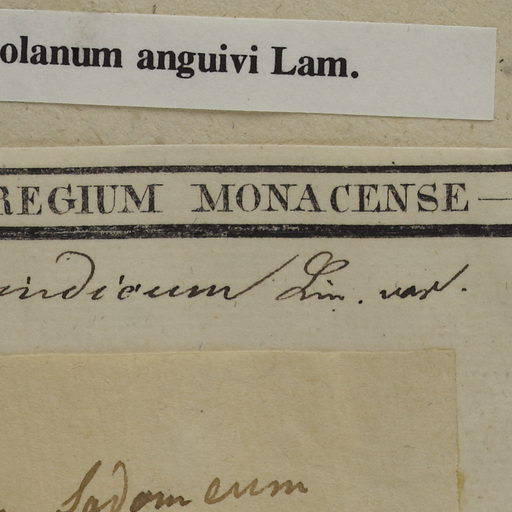 olanum anguivi Lam.
REGIUM MONACENSE
indicum Lin. var.
Sodomeum